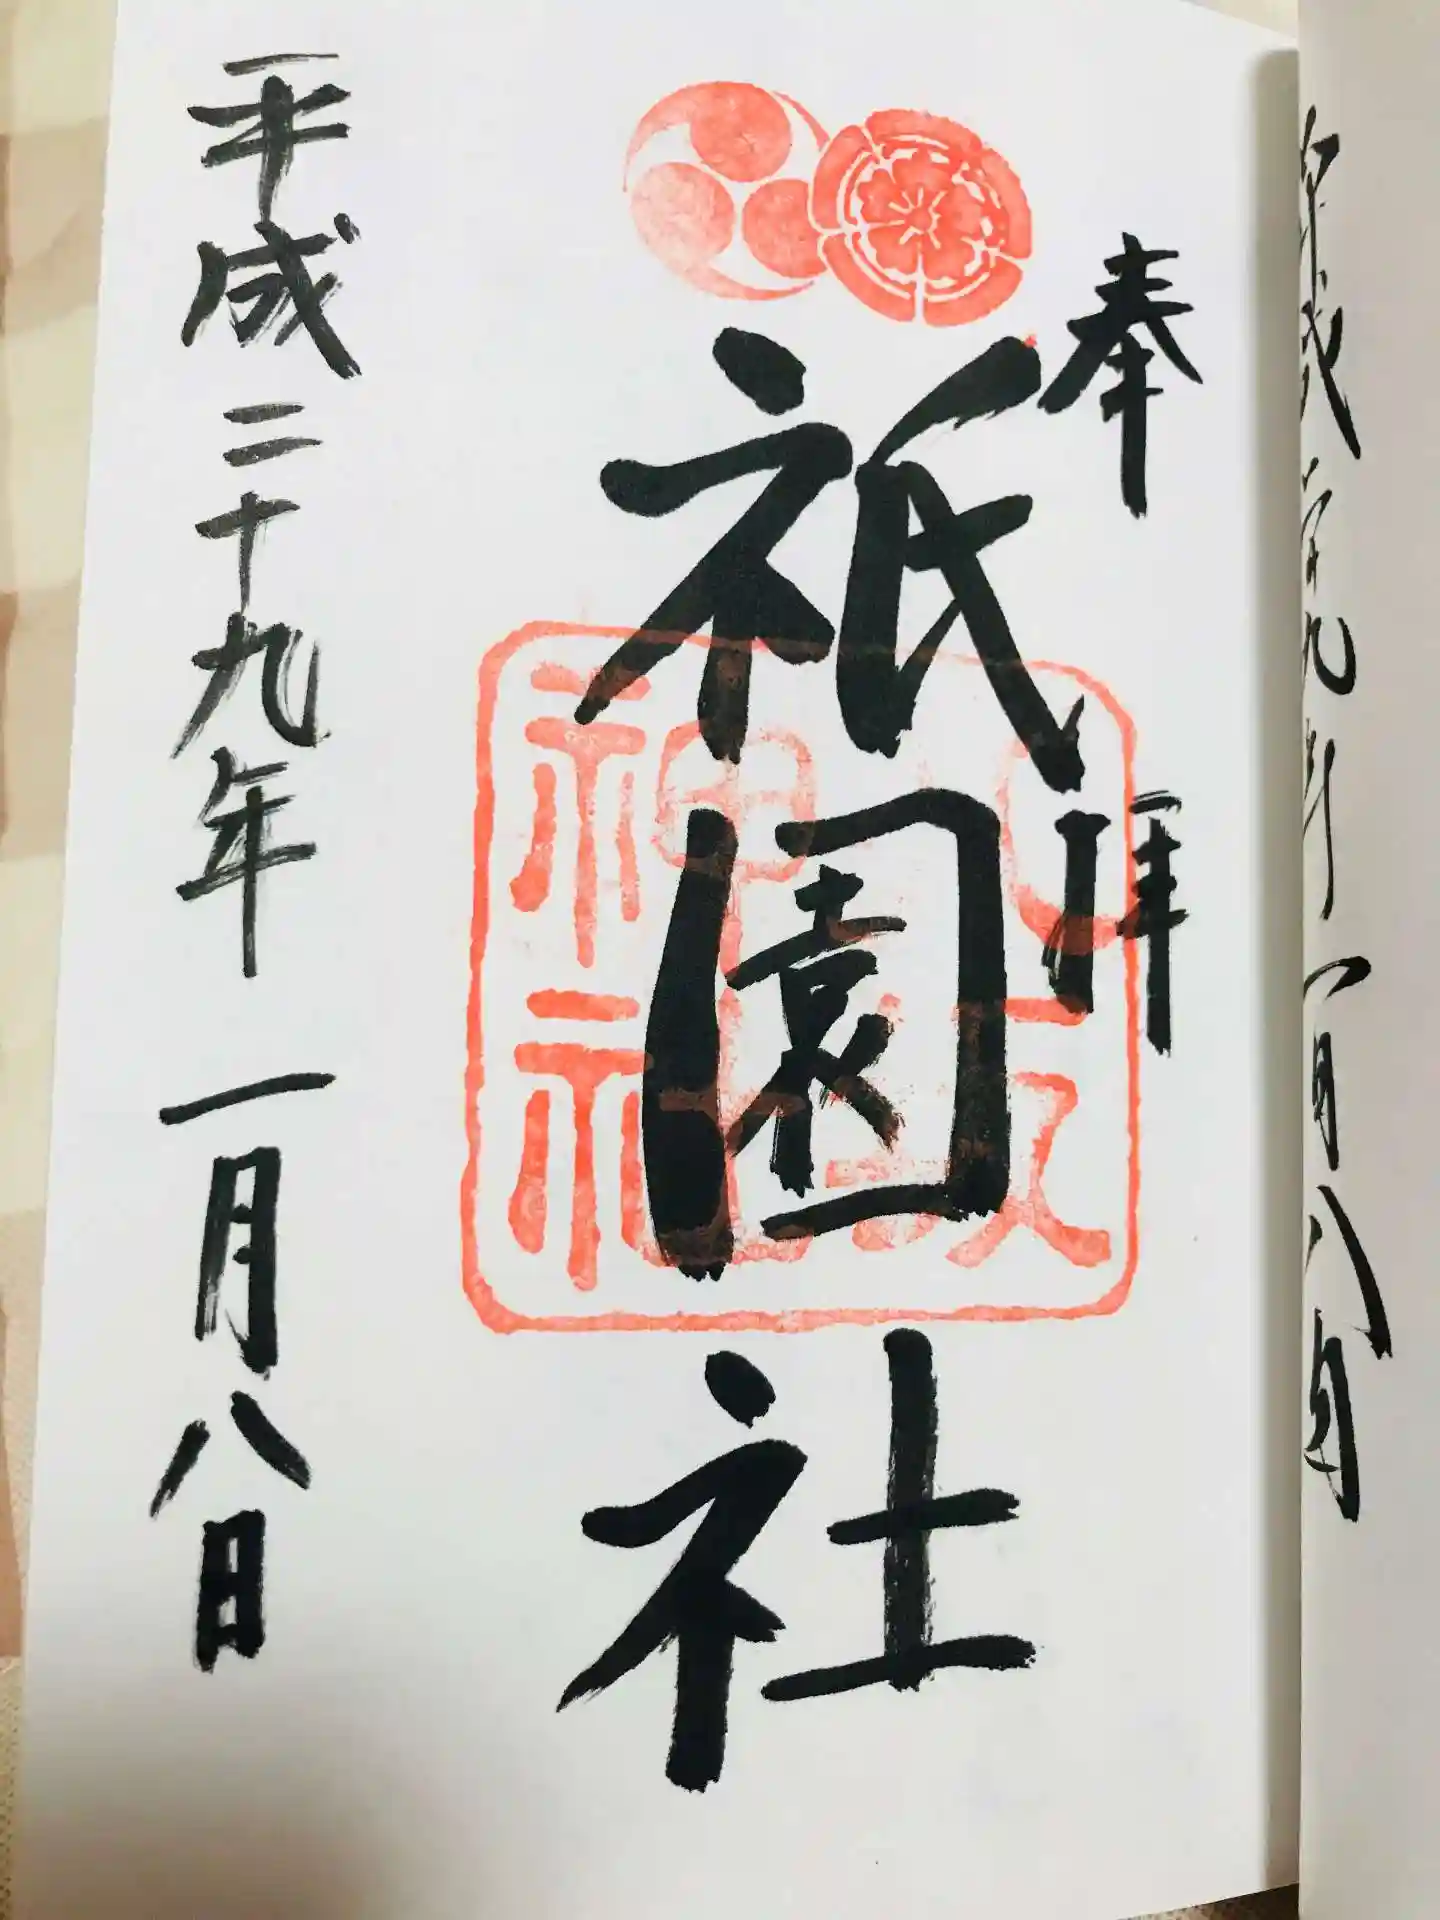 平成二十九年一月八日
奉拝
祇園社
八坂神社
平成二十九年一月八日